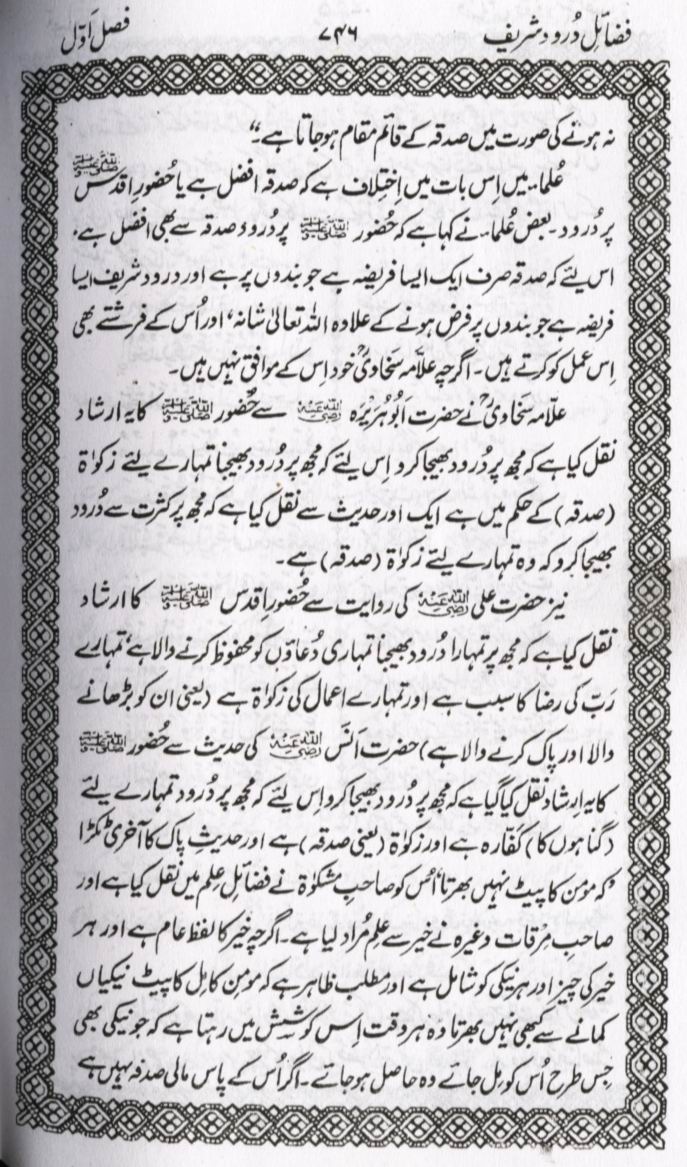 فضائل دُرود شریف
۷۴۶
فصل اَوّل
نہ ہونے کی صورت میں صدقہ کے قائم مقام ہوجاتا ہے“
عُلماء میں اِس بات میں اِختِلاف ہے کہ صدقہ افضل ہے یا حُضورِ اقدس ﷺ
پر دُرود۔ بعض عُلماء نے کہا ہے کہ حُضور ﷺ پر دُرود صدقہ سے بھی افضل ہے،
اس لئے کہ صدقہ صرف ایک ایسا فریضہ ہے جو بندوں پر ہے اور درود شریف ایسا
فریضہ ہے جو بندوں پر فرض ہونے کے علاوہ اللہ تعالیٰ شانہ، اور اُس کے فرشتے بھی
اِس عمل کو کرتے ہیں۔ اگرچہ علّامہ سخاویؒ خود اِس کے موافق نہیں ہیں۔
علّامہ سخاویؒ نے حضرت اَبُو ہُرَیْرَہ رَضِیَ اللهُ عَنْهُ سے حُضور ﷺ کا یہ ارشاد
نقل کیا ہے کہ مجھ پر دُرود بھیجا کرو اِس لئے کہ مجھ پر دُرود بھیجنا تمہارے لئے زکوٰۃ
(صدقہ) کے حکم میں ہے ایک اور حدیث سے نقل کیا ہے کہ مجھ پر کثرت سے دُرود
بھیجا کرو کہ وہ تمہارے لئے زکوٰۃ (صدقہ) ہے۔
نیز حضرت علی رَضِیَ اللهُ عَنْهُ کی روایت سے حُضورِ اقدس ﷺ کا ارشاد
نقل کیا ہے کہ مجھ پر تمہارا دُرود بھیجنا تمہاری دُعاؤں کو محفوظ کرنے والا ہے، تمہارے
رَبّ کی رضا کا سبب ہے اور تمہارے اعمال کی زکوٰۃ ہے (یعنی ان کو بڑھانے
والا اور پاک کرنے والا ہے) حضرت اَنَسؓ رَضِیَ اللهُ عَنْهُ کی حدیث سے حُضور ﷺ
کا یہ ارشاد نقل کیا گیا ہے کہ مجھ پر دُرود بھیجا کرو اِس لئے کہ مجھ پر دُرود تمہارے لئے
(گناہوں کا) کفّارہ ہے اور زکوٰۃ (یعنی صدقہ) ہے اور حدیثِ پاک کا آخری ٹکڑا
’کہ مومن کا پیٹ نہیں بھرتا‘ اُس کو صاحبِ مشکوٰۃ نے فضائل عِلم میں نقل کیا ہے اور
صاحبِ مرقات وغیرہ نے خیر سے عِلم مُراد لیا ہے۔ اگرچہ خیر کا لفظ عام ہے اور ہر
خیر کی چیز اور ہر نیکی کو شامل ہے اور مطلب ظاہر ہے کہ مومنِ کامِل کا پیٹ نیکیاں
کمانے سے کبھی نہیں بھرتا وہ ہر وقت اِس کوشش میں رہتا ہے کہ جو نیکی بھی
جس طرح اُس کو مِل جائے وہ حاصل ہوجائے۔ اگر اُس کے پاس مالی صدقہ نہیں ہے